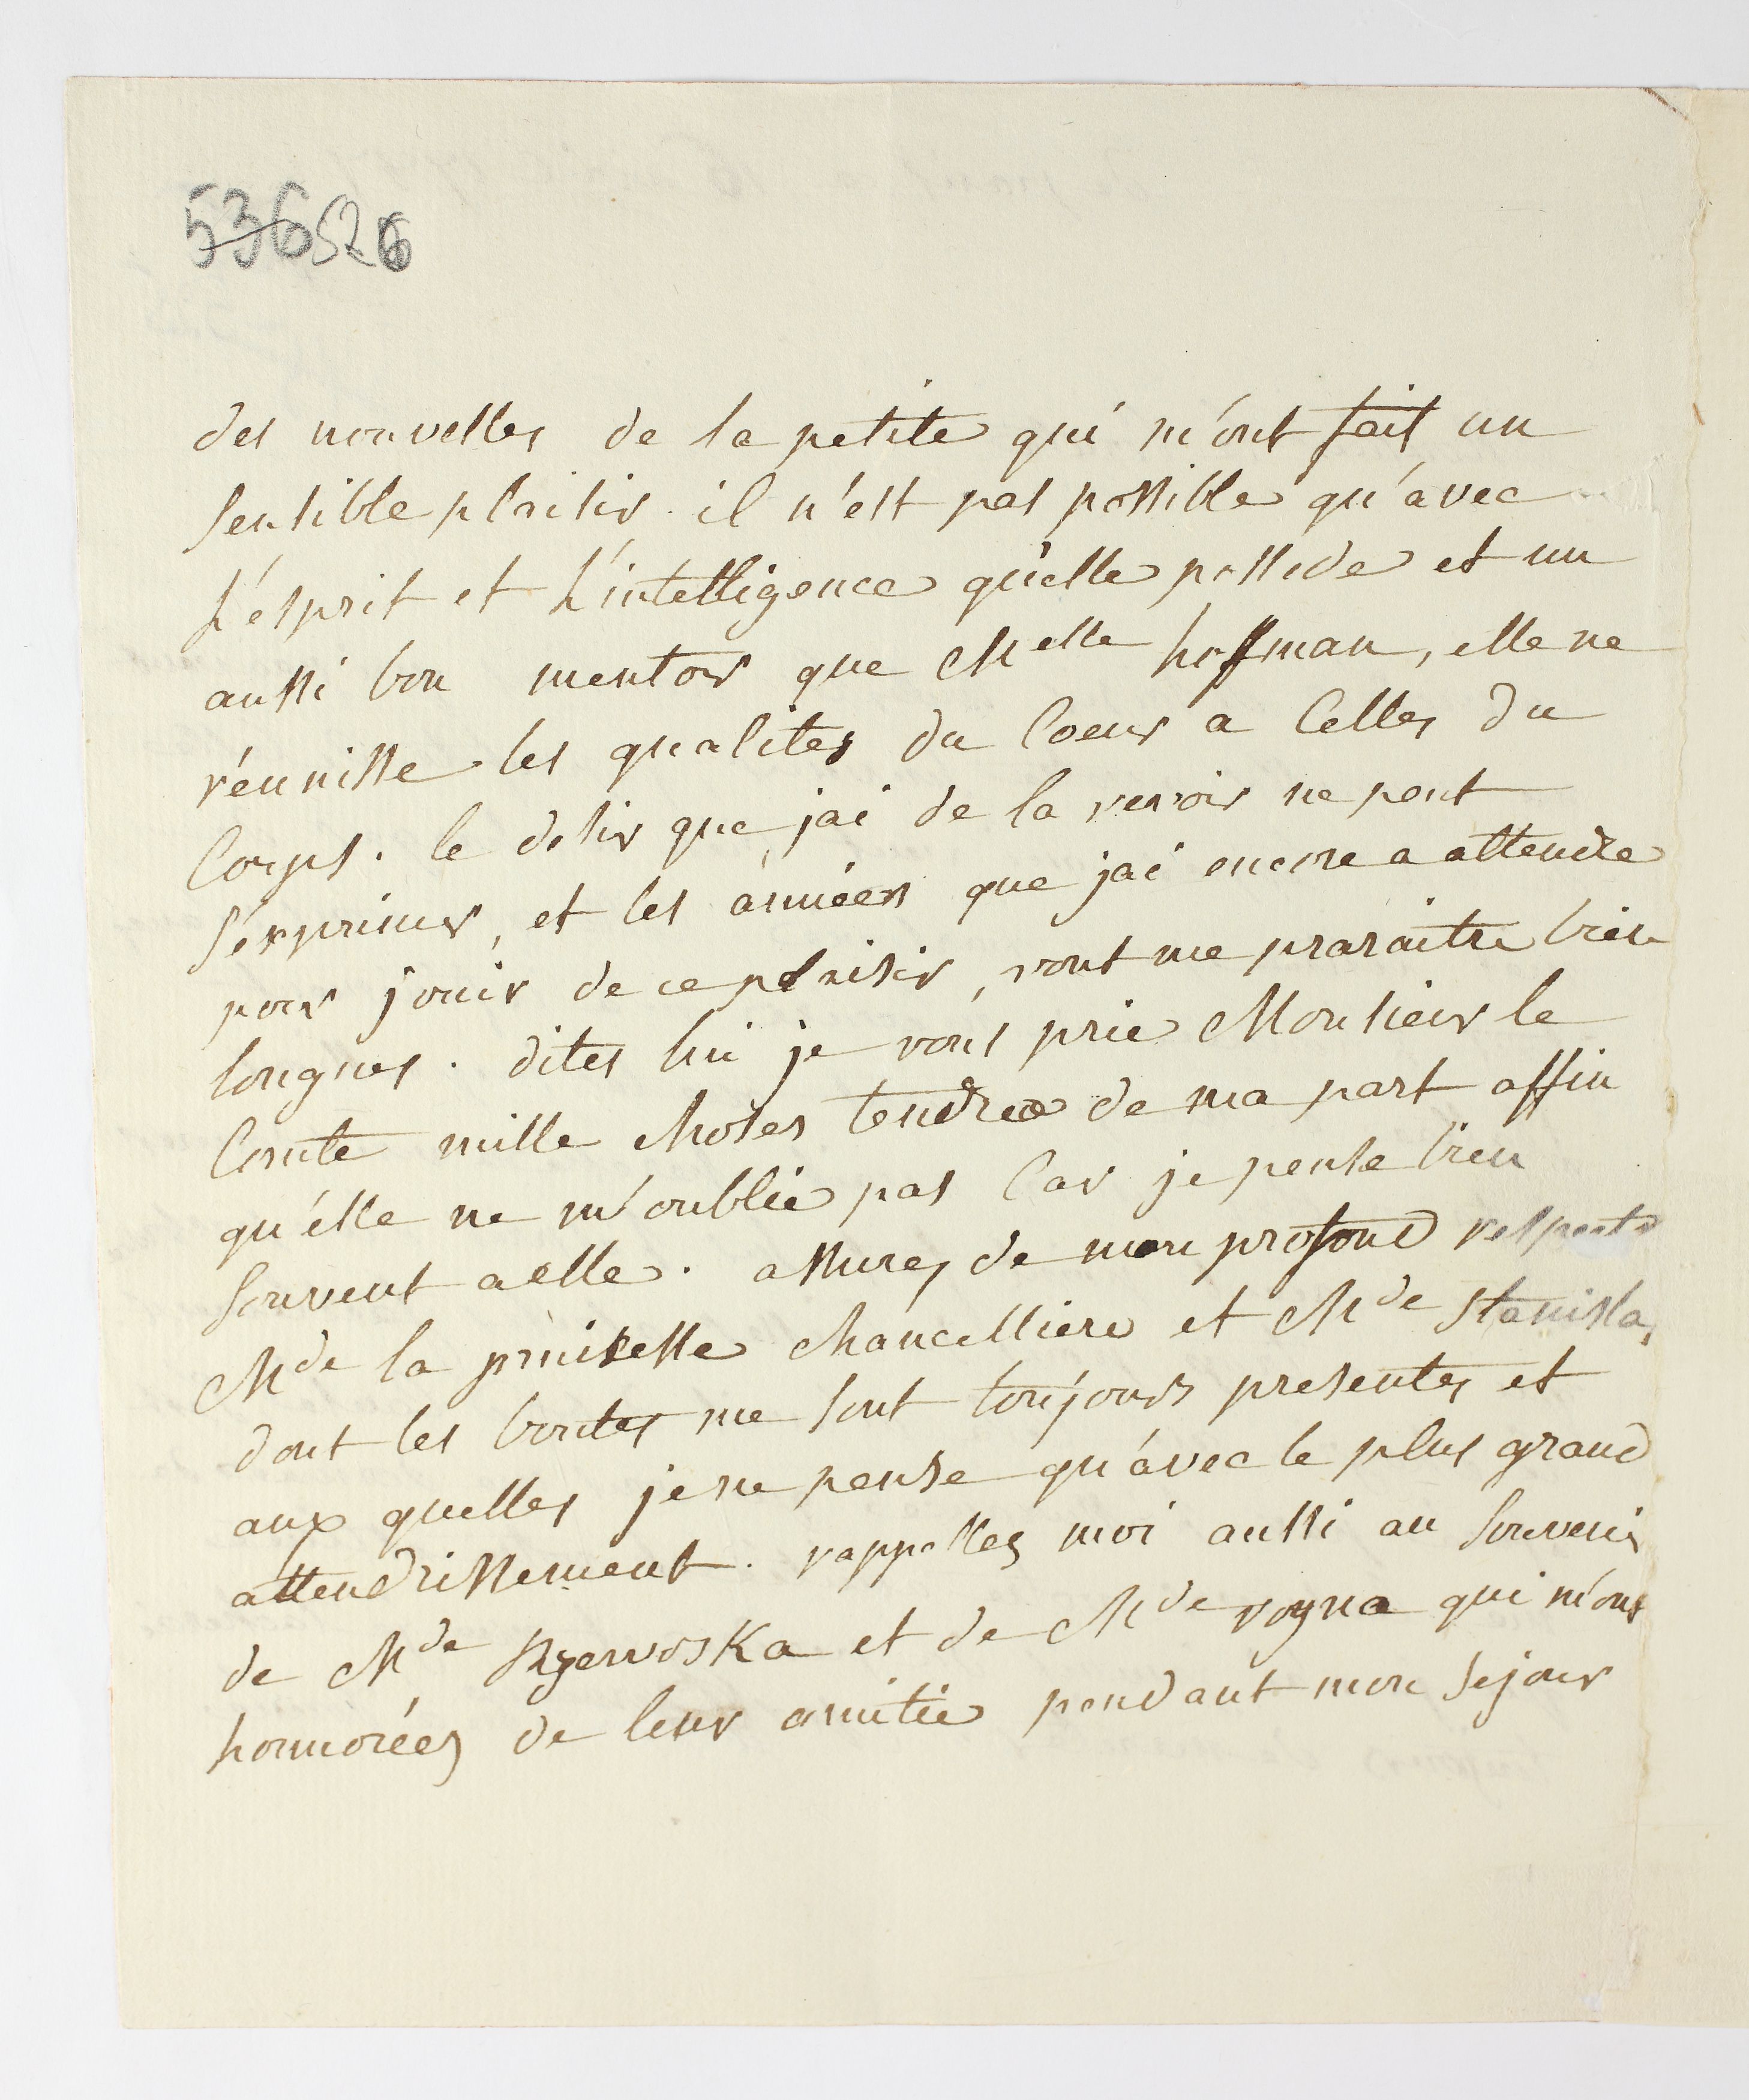 536 526
des nouvelles de la petite qui m'ont fait un
sensible plaisir. il n'est pas possible qu'avec
L'ésprit et L'intelligence qu'elle possede et un
aussi bon mentor que Melle hofman, elle ne
réunisse les qualites du Coeur a Celles du
Corps. le desir que jai de la revoir ne peut
s'éxprimer, et les années que jai encore a attendre
pour jouir de ce plaisir, vont me praraitre bien
longues. dites lui je vous prie Monsieur le
Comte mille choses tendres de ma part affin
qu'élle ne m'oublie pas Car je pense bien
souvent a elle. assurez de mon profond respects
Mde la prinsesse chancelliere et Mde stanislas
dont les bontes me sont toujours presentes et
aux quelles je ne pense qu'avec le plus grand
attendrissement. rappellez moi aussi au souvenir
de Mde Rzewuska et de Mde voyna qui m'ont
honnorées de leur amitie pendant mon sejour